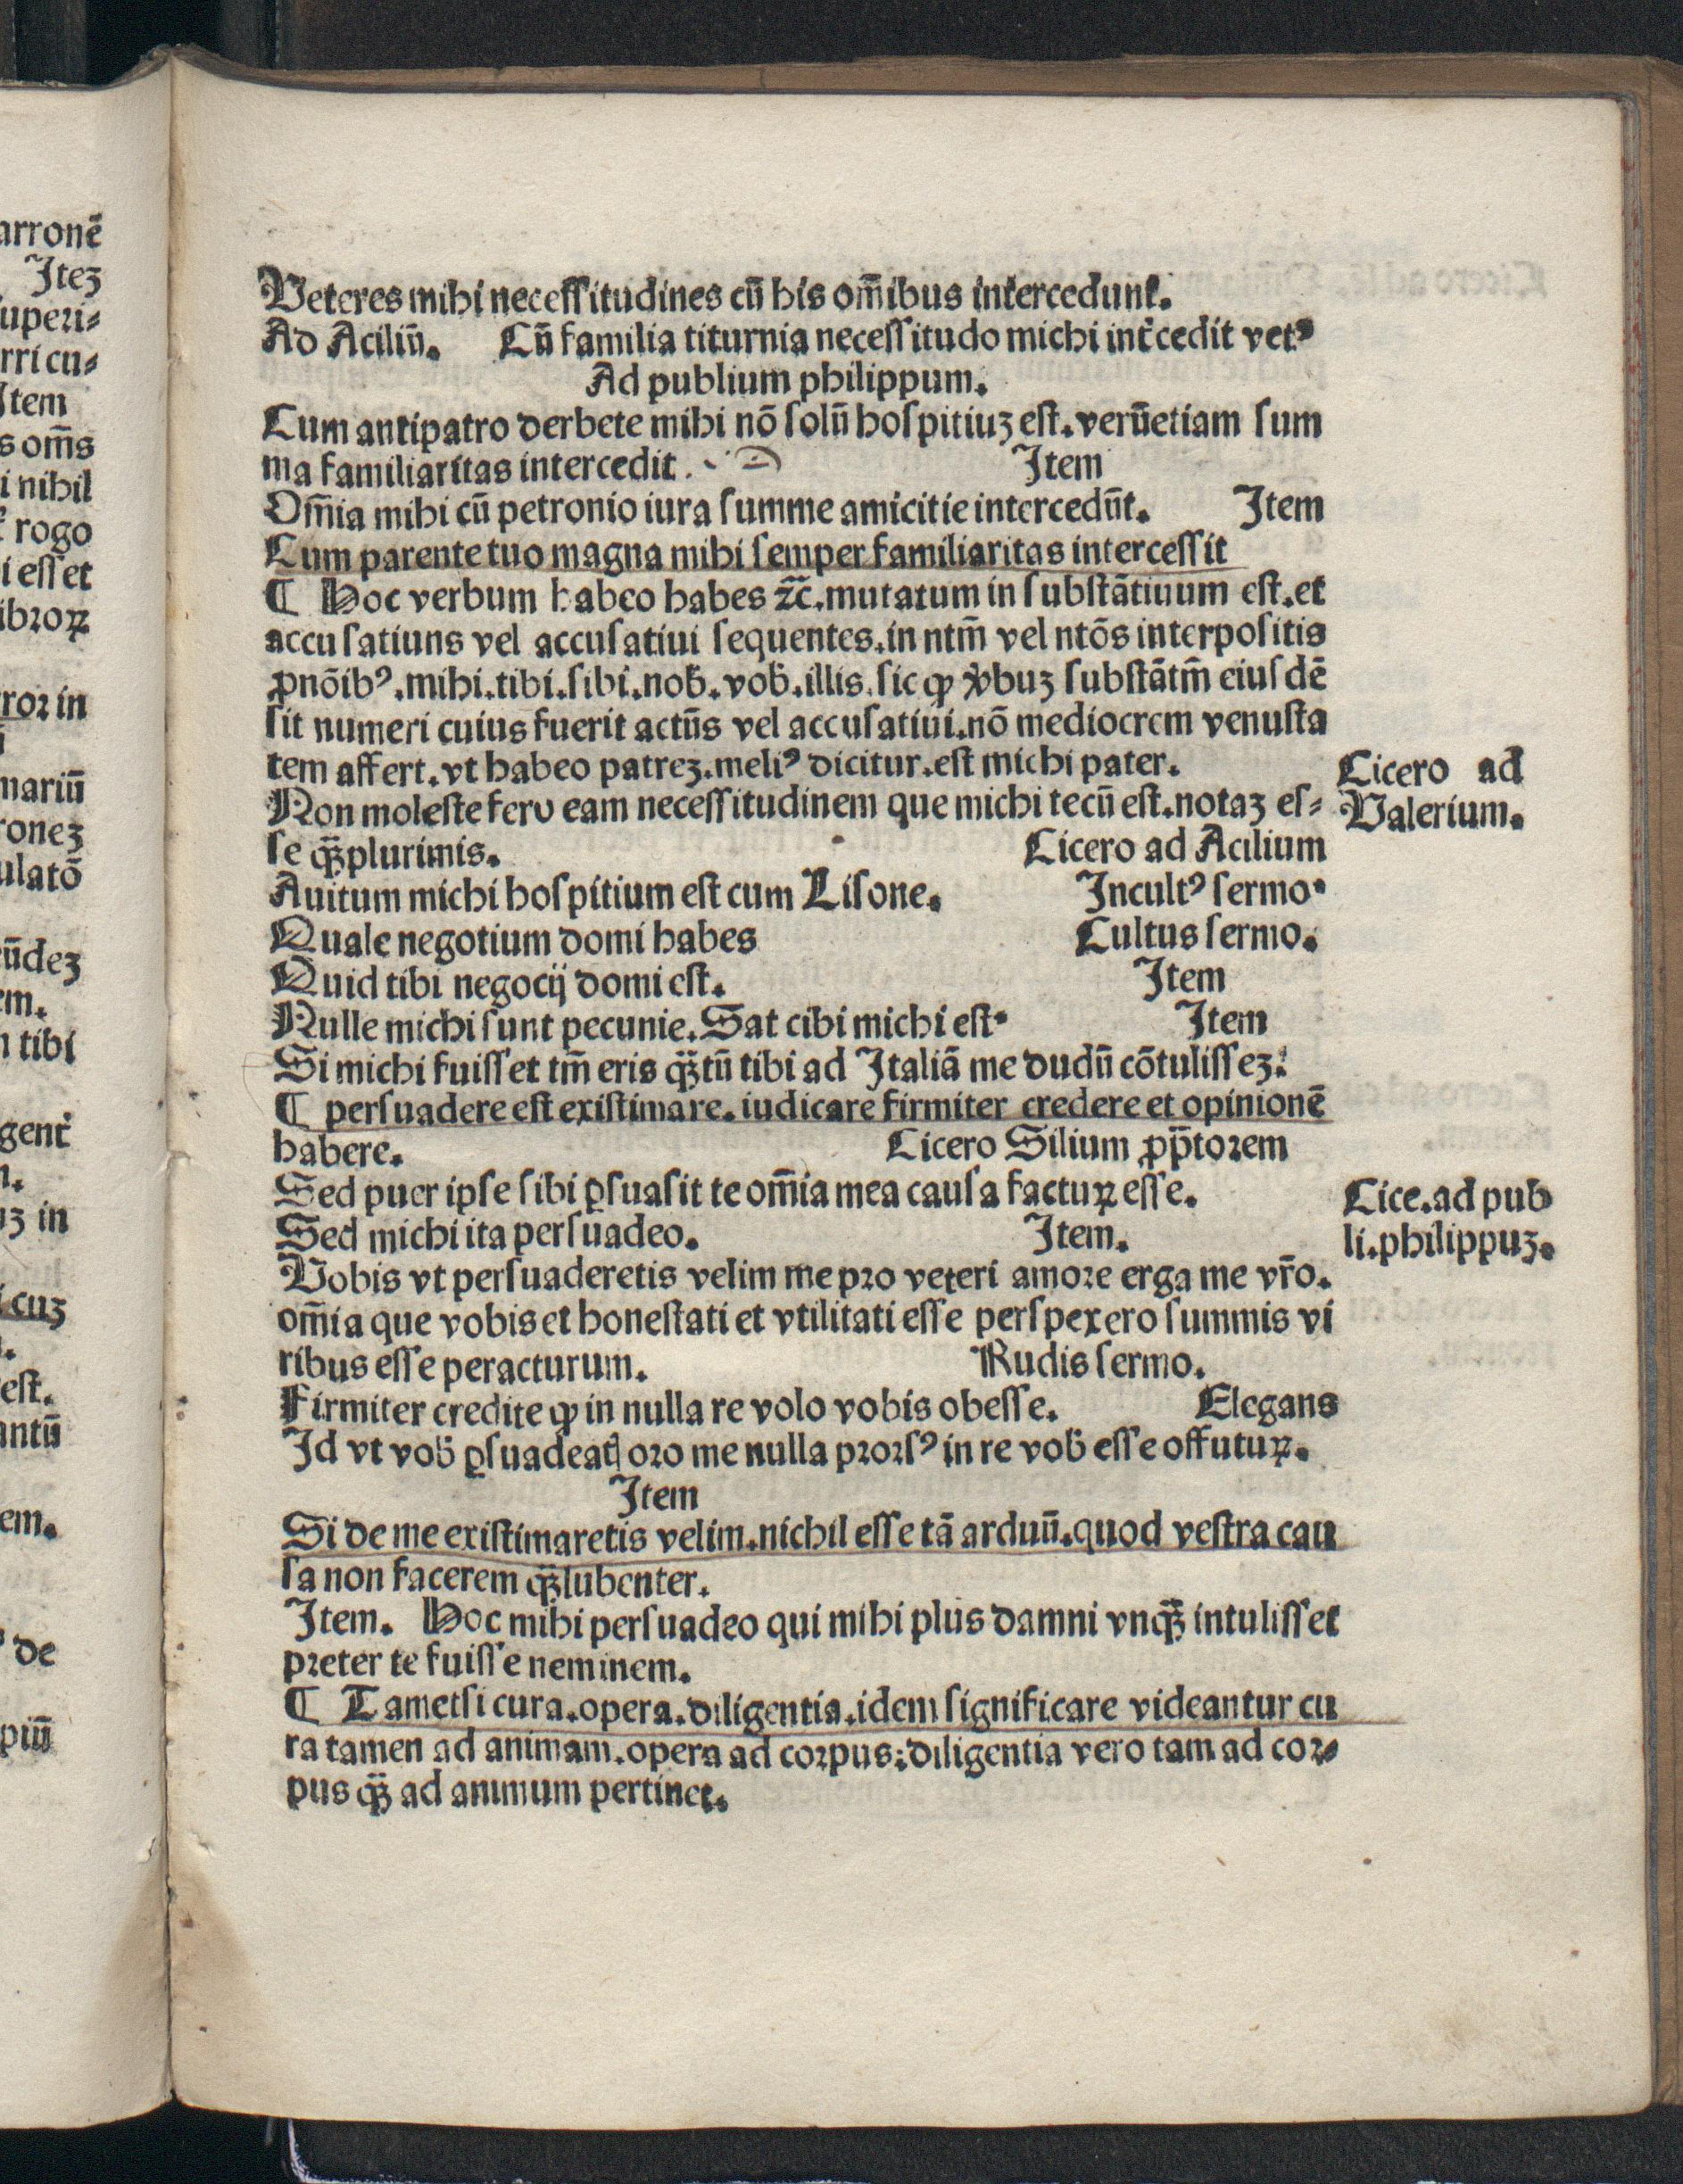 Veteres mihi necessitudines cū his om̄ibus intercedunt.
Ad Aciliū. Cū familia titurnia necessitudo michi int̄cedit vetꝰ
Ad publium philippum.
Cum antipatro derbete mihi nō solū hospitiuꝫ est. verūetiam sum
ma familiaritas intercedit. Item
Om̄ia mihi cū petronio iura summe amicitie intercedūt. Item
Cum parente tuo magna mihi semper familiaritas intercessit
¶ Hoc verbum habeo habes ⁊c̄. mutatum in substātiuum est. et
accusatiuns vel accusatiui sequentes. in ntm̄ vel ntōs interpositis
ꝓnōibꝰ. mihi. tibi. sibi. nob̄. vob̄. illis. sic ꝙ v̄buꝫ substātm̄ eiusdē
sit numeri cuius fuerit actūs vel accusatiui. nō mediocrem venusta
tem affert. vt habeo patreꝫ. meliꝰ dicitur. est michi pater.
Non moleste fero eam necessitudinem que michi tecū est. notaꝫ es⸗
se qꝫ̄ plurimis. Cicero ad Acilium
Auitum michi hospitium est cum Lisone. Incultꝰ sermo.
Quale negotium domi habes Cultus sermo.
Quid tibi negocij domi est. Item
Nulle michi sunt pecunie. Sat cibi michi est. Item
Si michi fuisset tm̄ eris qꝫ̄tū tibi ad Italiā me dudū cōtulisseꝫ.
¶ persuadere est existimare. iudicare firmiter credere et opinionē
habere. Cicero Silium ꝓp̄torem
Sed puer ipse sibi ꝑsuasit te om̄ia mea causa facturꝝ esse.
Sed michi ita persuadeo. Item.
Vobis vt persuaderetis velim me pro veteri amore erga me vr̄o.
om̄ia que vobis et honestati et vtilitati esse perspexero summis vi
ribus esse peracturum. Rudis sermo.
Firmiter credite ꝙ in nulla re volo vobis obesse. Elegans
Id vt vob̄ ꝑsuadeatꝭ oro me nulla prorsꝰ in re vob̄ esse offuturꝝ.
Item
Si de me existimaretis velim. nichil esse tā arduū. quod vestra cau
sa non facerem qꝫ̄ lubenter.
Item. Hoc mihi persuadeo qui mihi plus damni vnqꝫ̄ intulisset
preter te fuisse neminem.
¶ Tametsi cura. opera. diligentia. idem significare videantur cu
ra tamen ad animam. opera ad corpus: diligentia vero tam ad cor⸗
pus qꝫ̄ ad animum pertinet.
Cicero ad
Valerium.
Cice. ad pub
li. philippuꝫ.
arronē
Iteꝫ
uperi⸗
rri cu⸗
Item
s om̄s
i nihil
rogo
i esset
ibroꝝ
ror in
mariū
roneꝫ
ulatō
ūdeꝫ
em.
n tibi
gent̄
uꝫ in
cuꝫ
est.
antū
em.
de
piū